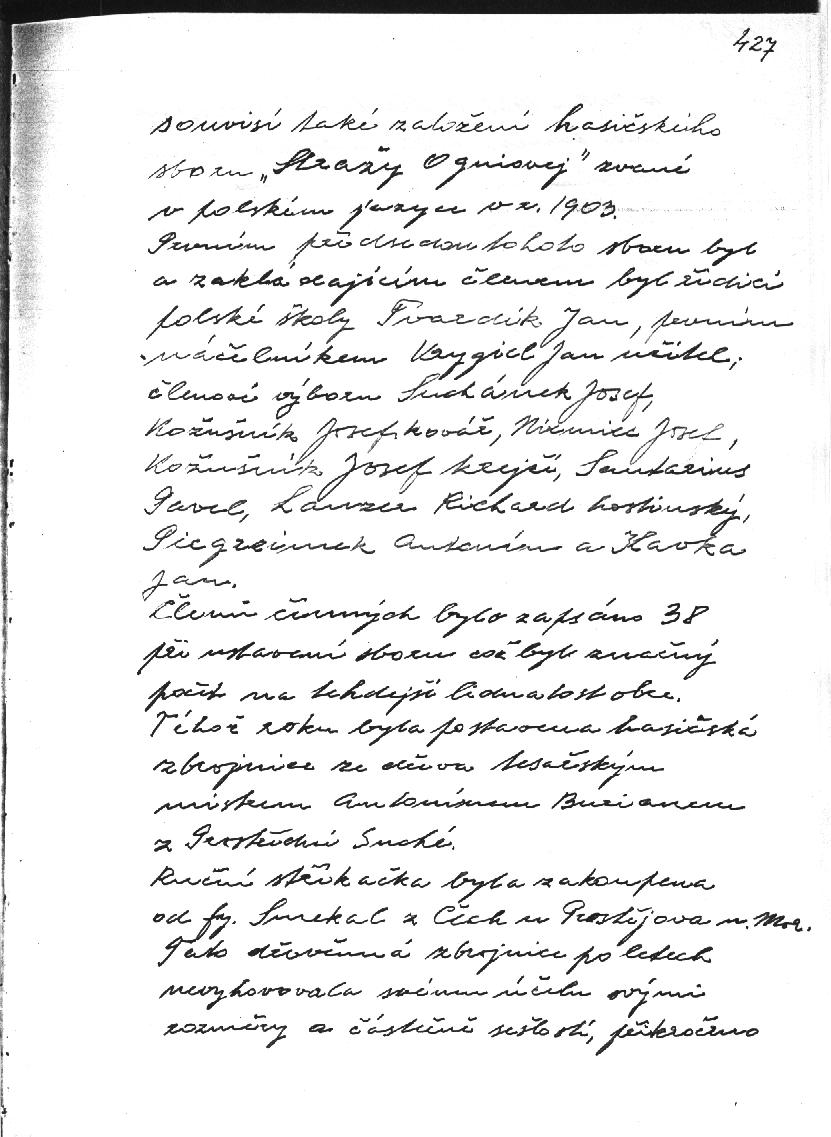 427
souvisí také založení hasičského
sboru „Stražy Ogniovej" zvané
v polském jazyce v r. 1903.
Prvním předsedou tohoto sboru byl
a zakládajícím členem byl řídící
polské školy Tvardík Jan, prvním
náčelníkem Krygiel Jan učitel,
členové výboru Suchánek Josef,
Kožušník Josef kovář, Niemiec Josef,
Kožušník Josef krejčí, Santarius
Pavel, Lanzer Richard hostinský,
Antonín a Kavka
Jan.
Členů činných bylo zapsáno 38
při ustavení sboru což byl značný
počet na tehdejší lidnatost obce.
Téhož roku byla postavena hasičská
zbrojnice ze dřeva tesařským
mistrem Antonínem Burianem
z Prostřední Suché.
Ruční stříkačka byla zakoupena
od fy. Smekal z Čech u Prostějova n. Mor.
Tato dřevěnná zbrojnice po letech
nevyhovovala svému účelu svými
rozměry a částečně sešlostí, přikročeno